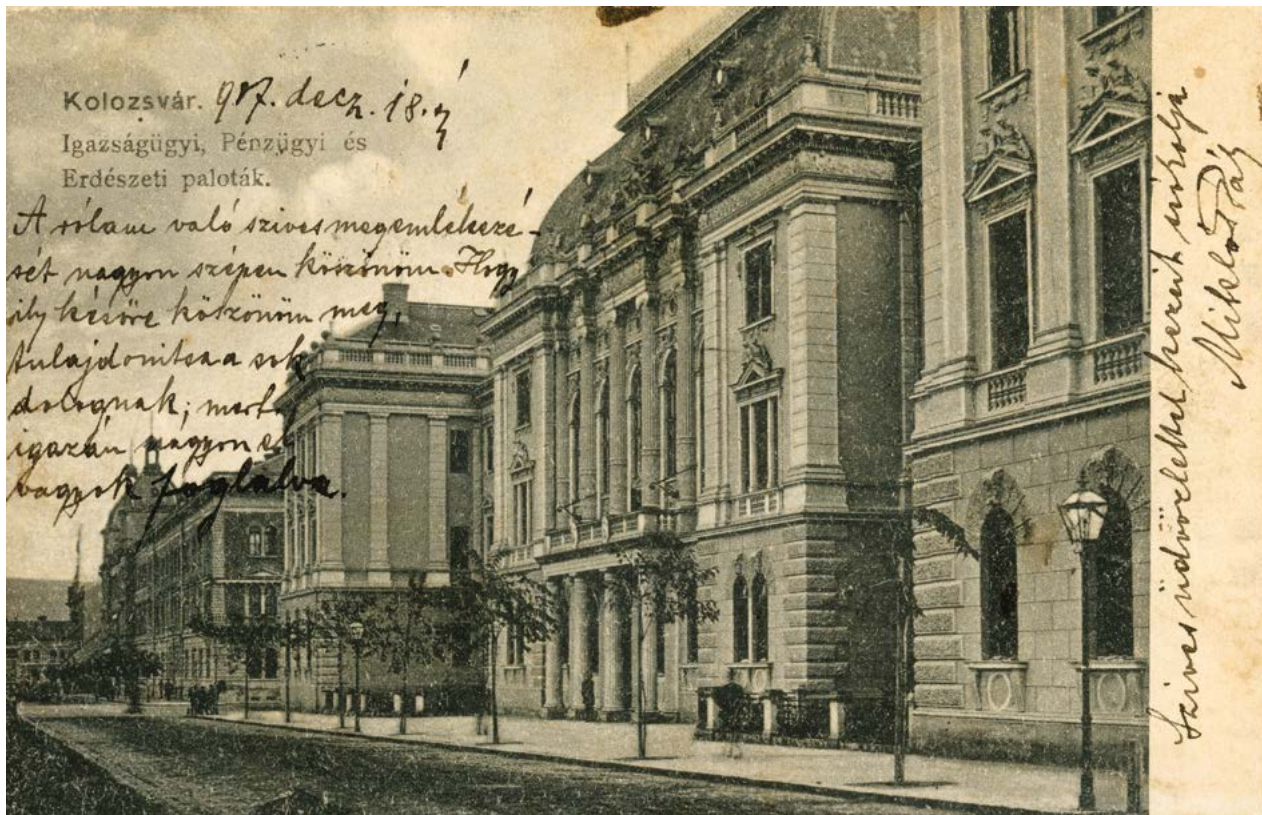 Kolozsvár. 907. decz. 18.
Igazságügyi, Pénzügyi és
Erdészeti paloták.
A rólam való szives megemlékezé-
sét nagyon szépen köszönöm. Hogy
ily későre köszönöm meg,
tulajdonitsa a sok
dolognak; mert
igazán nagyon el
vagyok foglalva.
Szives üdvözlettel kezeit csókolja
Miklós Pál